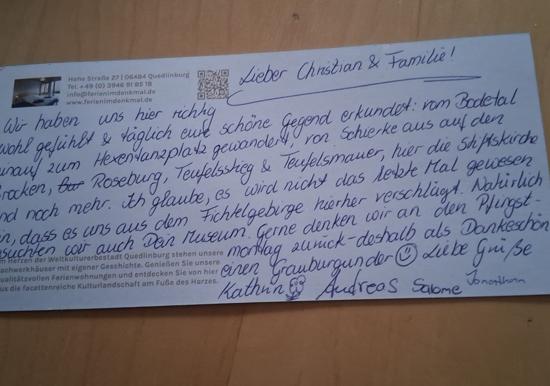 Hohe Straße 27 | 06484 Quedlinburg
Tel. +49 (0) 3946 81 85 18
info@ferienimdenkmal.de
www.ferienimdenkmal.de
Lieber Christian & Familie!
Wir haben uns hier richtig
wohl gefühlt & täglich eure schöne Gegend erkundet: vom Bodetal
hinauf zum Hexentanzplatz gewandert, von Schierke aus auf den
Brocken, Roseburg, Teufelsstieg & Teufelsmauer, hier die Stiftskirche
und noch mehr. Ich glaube, es wird nicht das letzte Mal gewesen
sein, dass es uns aus dem Fichtelgebirge hierher verschlägt. Natürlich
besuchten wir auch Dein Museum. Gerne denken wir an den Pfingst-
montag zurück - deshalb als Dankeschön
einen Grauburgunder ☺ Liebe Grüße
Kathrin Andreas Salome Jonathan
Im Herzen der Weltkulturerbestadt Quedlinburg stehen unsere
Fachwerkhäuser mit eigener Geschichte. Genießen Sie unsere
qualitätsvollen Ferienwohnungen und entdecken Sie von hier
aus die facettenreiche Kulturlandschaft am Fuße des Harzes.